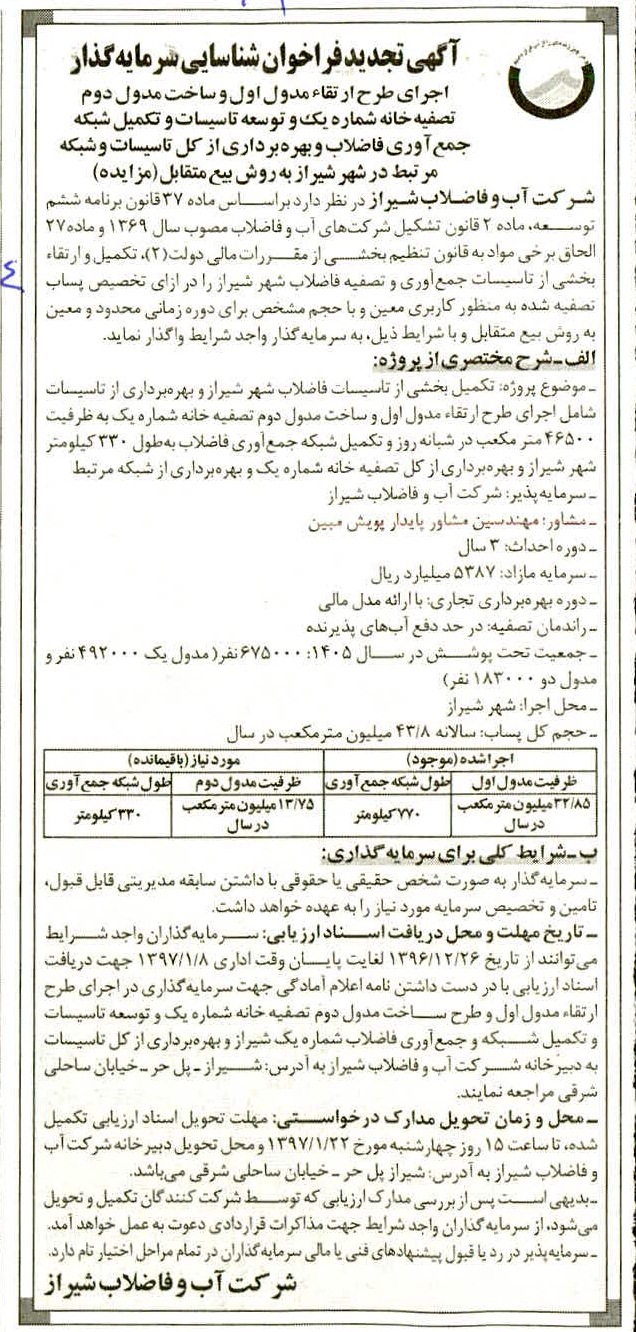 آگهی تجدید فراخوان شناسایی سرمایه‌گذار
اجرای طرح ارتقاء مدول اول و ساخت مدول دوم
تصفیه خانه شماره یک و توسعه تاسیسات و تکمیل شبکه
جمع‌آوری فاضلاب و بهره‌برداری از کل تاسیسات و شبکه
مرتبط در شهر شیراز به روش بیع متقابل (مزایده)
شرکت آب و فاضلاب شیراز در نظر دارد براساس ماده ۳۷ قانون برنامه ششم
توسعه، ماده ۲ قانون تشکیل شرکت‌های آب و فاضلاب مصوب سال ۱۳۶۹ و ماده ۲۷
الحاق برخی مواد به قانون تنظیم بخشی از مقررات مالی دولت(۲)، تکمیل و ارتقاء
بخشی از تاسیسات جمع‌آوری و تصفیه فاضلاب شهر شیراز را در ازای تخصیص پساب
تصفیه شده به منظور کاربری معین و با حجم مشخص برای دوره زمانی محدود و معین
به روش بیع متقابل و با شرایط ذیل، به سرمایه‌گذار واجد شرایط واگذار نماید.
الف ـ شرح مختصری از پروژه:
ـ موضوع پروژه: تکمیل بخشی از تاسیسات فاضلاب شهر شیراز و بهره‌برداری از تاسیسات
شامل اجرای طرح ارتقاء مدول اول و ساخت مدول دوم تصفیه خانه شماره یک به ظرفیت
۴۶۵۰۰ متر مکعب در شبانه روز و تکمیل شبکه جمع‌آوری فاضلاب به‌طول ۳۳۰ کیلومتر
شهر شیراز و بهره‌برداری از کل تصفیه خانه شماره یک و بهره‌برداری از شبکه مرتبط
ـ سرمایه‌پذیر: شرکت آب و فاضلاب شیراز
ـ مشاور: مهندسین مشاور پایدار پویش مبین
ـ دوره احداث: ۳ سال
ـ سرمایه مازاد: ۵۳۸۷ میلیارد ریال
ـ دوره بهره‌برداری تجاری: با ارائه مدل مالی
ـ راندمان تصفیه: در حد دفع آب‌های پذیرنده
ـ جمعیت تحت پوشش در سال ۱۴۰۵: ۶۷۵۰۰۰ نفر( مدول یک ۴۹۲۰۰۰ نفر و
مدول دو ۱۸۳۰۰۰ نفر)
ـ محل اجرا: شهر شیراز
ـ حجم کل پساب: سالانه ۴۳/۸ میلیون مترمکعب در سال
اجرا شده (موجود) مورد نیاز (باقیمانده)
ظرفیت مدول اول طول شبکه جمع‌آوری ظرفیت مدول دوم طول شبکه جمع‌آوری
۳۲/۸۵ میلیون متر مکعب در سال ۷۷۰ کیلومتر ۱۳/۷۵ میلیون متر مکعب در سال ۳۳۰ کیلومتر
ب ـ شرایط کلی برای سرمایه‌گذاری:
ـ سرمایه‌گذار به صورت شخص حقیقی یا حقوقی با داشتن سابقه مدیریتی قابل قبول،
تامین و تخصیص سرمایه مورد نیاز را به عهده خواهد داشت.
ـ تاریخ مهلت و محل دریافت اسناد ارزیابی: سرمایه‌گذاران واجد شرایط
می‌توانند از تاریخ ۱۳۹۶/۱۲/۲۶ لغایت پایان وقت اداری ۱۳۹۷/۱/۸ جهت دریافت
اسناد ارزیابی با در دست داشتن نامه اعلام آمادگی جهت سرمایه‌گذاری در اجرای طرح
ارتقاء مدول اول و طرح ساخت مدول دوم تصفیه خانه شماره یک و توسعه تاسیسات
و تکمیل شبکه و جمع‌آوری فاضلاب شماره یک شیراز و بهره‌برداری از کل تاسیسات
به دبیرخانه شرکت آب و فاضلاب شیراز به آدرس: شیراز ـ پل حر ـ خیابان ساحلی
شرقی مراجعه نمایند.
ـ محل و زمان تحویل مدارک درخواستی: مهلت تحویل اسناد ارزیابی تکمیل
شده، تا ساعت ۱۵ روز چهارشنبه مورخ ۱۳۹۷/۱/۲۲ و محل تحویل دبیرخانه شرکت آب
و فاضلاب شیراز به آدرس: شیراز پل حر ـ خیابان ساحلی شرقی می‌باشد.
ـ بدیهی است پس از بررسی مدارک ارزیابی که توسط شرکت کنندگان تکمیل و تحویل
می‌شود، از سرمایه‌گذاران واجد شرایط جهت مذاکرات قراردادی دعوت به عمل خواهد آمد.
ـ سرمایه‌پذیر در رد یا قبول پیشنهادهای فنی یا مالی سرمایه‌گذاران در تمام مراحل اختیار تام دارد.
شرکت آب و فاضلاب شیراز